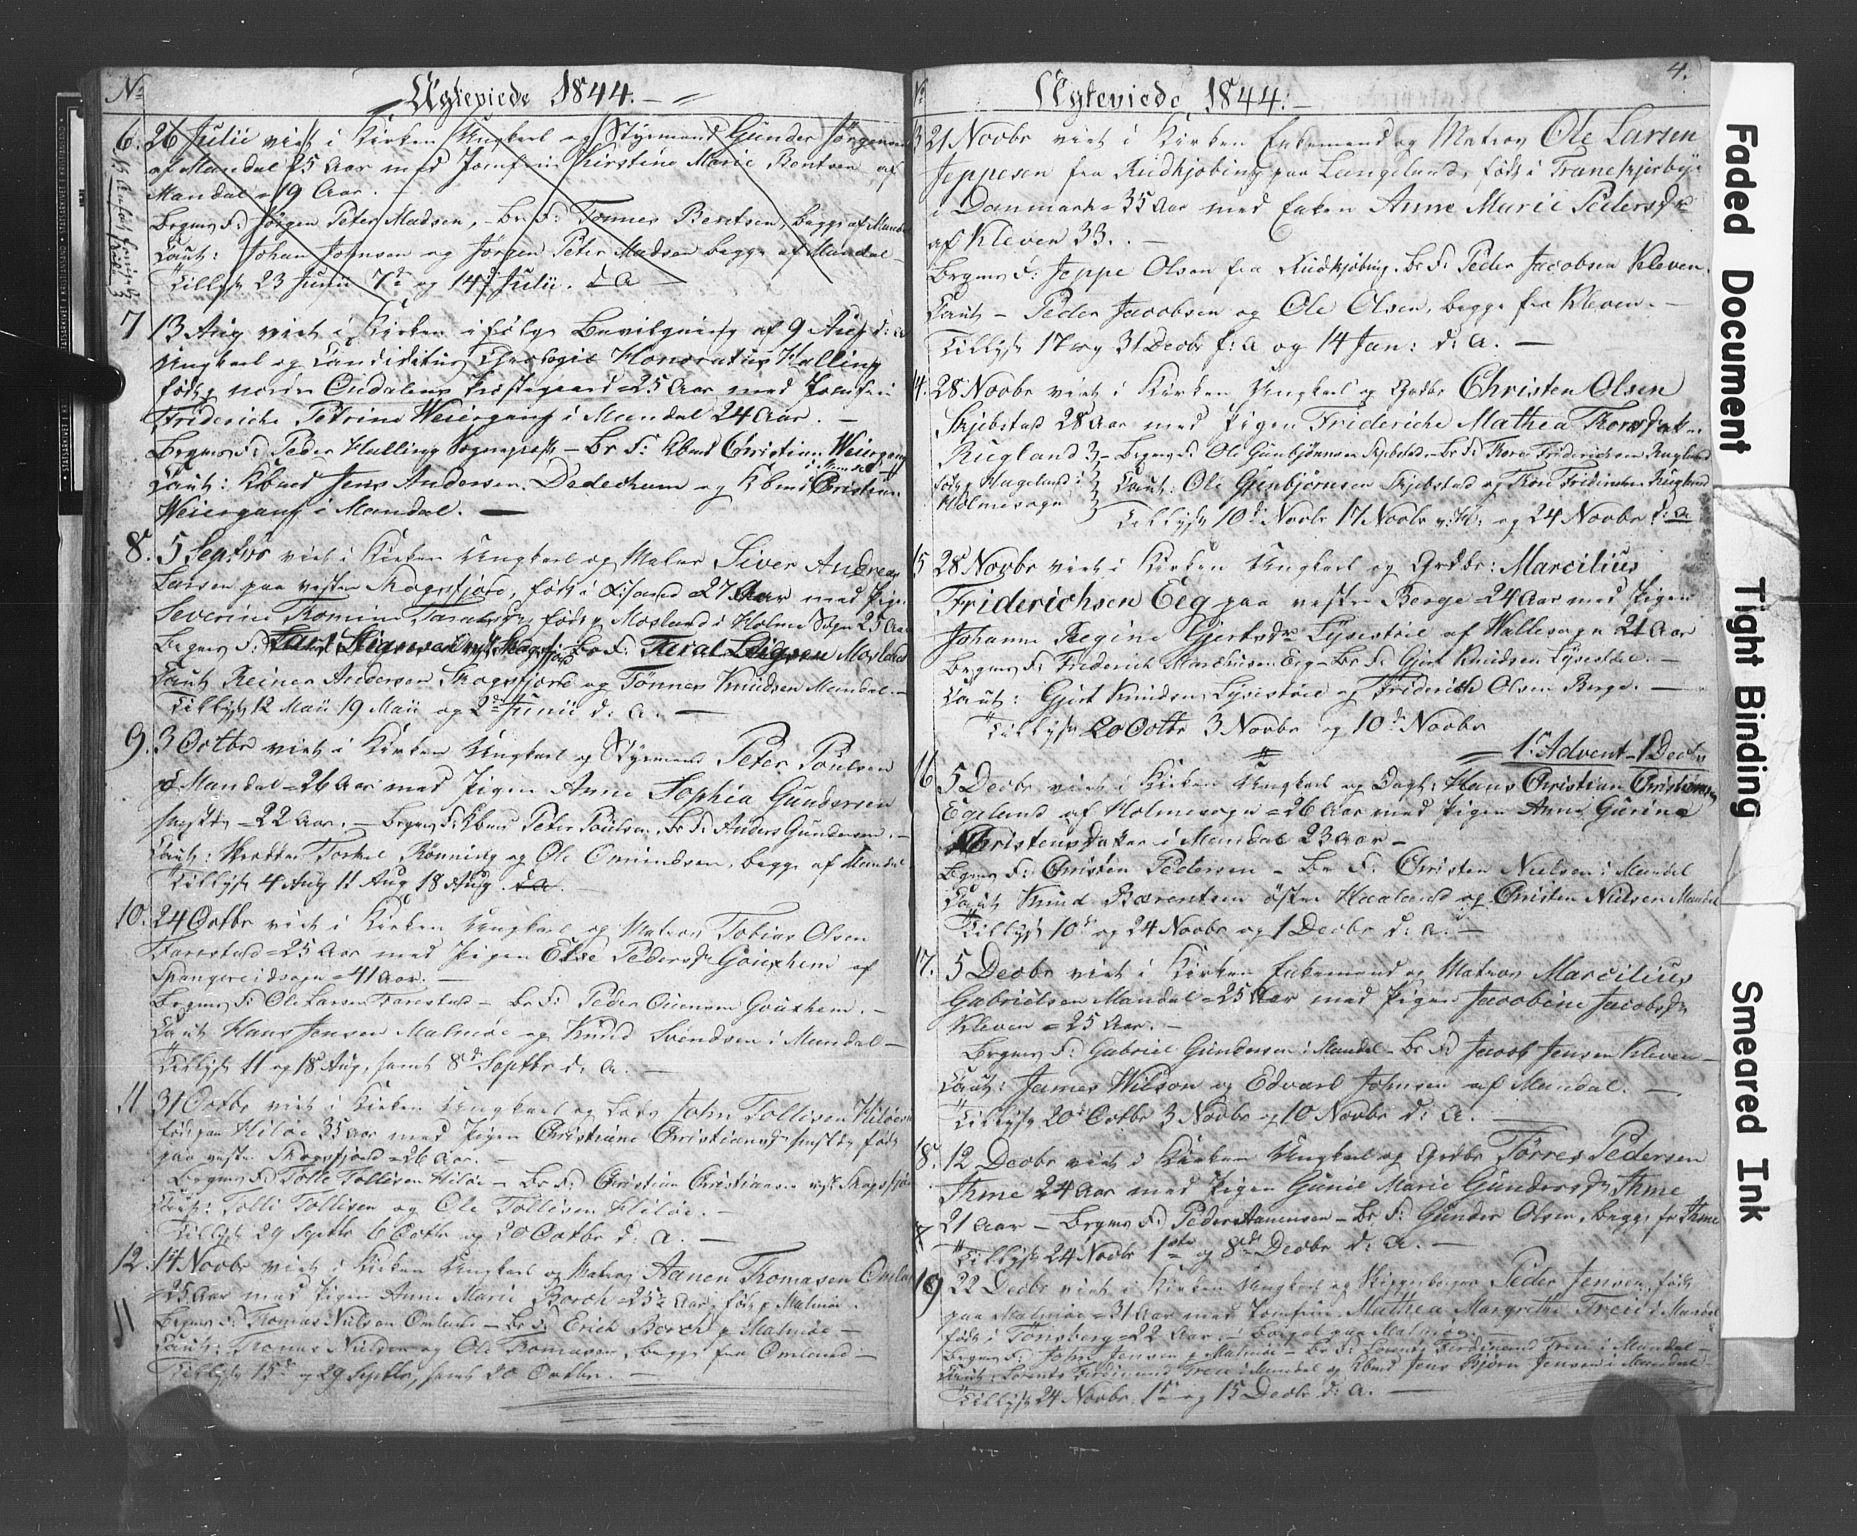 No
Ægteviede 1844.
6. 26 Julii viet i Kirken Ungkarl og Styrmand Gunder Jörgensen
af Mandal 25 Aar med Jomfru Kirstine Marie Bentsen af
Mandal 19 Aar.
Brgms F: Jörgen Peter Madsen, Br F: Tönnes Berntsen, begge af Mandal
Caut: Johan Johnsen og Jörgen Peter Madsen begge af Mandal
Tillyst 23 Junii 7de og 14de Julii. d. A
7 13 Aug viet i Kirken i fölge Bevilgning af 9 Aug d: A
Ungkarl og Candidatus Theologiæ Honoratus Halling
födt nordre Oudalens Præstegaard 25 Aar med Jomfru
Frideriche Petrine Weiergang i Mandal 24 Aar. —
Brgms F: Peder Halling Sognepræst — Br F: Kbmd Christian Weiergang
i Mandal
Caut: Kbmd Jens Andersen Dedechum og Kbmd Christian
Weiergang i Mandal. —
8. 5 Septbr viet i Kirken Ungkarl og Maler Siver Andreas
Larsen paa vestre Skogsfjord, födt i 27 Aar med Pigen
Severine Tomine födt Mosland i Holme Sogn 25 Aar
Brgms F: Br F: Mosland
Caut Reiner Andersen Skogsfjord og Tönnes Knudsen Mandal. —
Tillyst 12 Maii 19 Maii og 2den Junii d. A. —
9. 3 Octbr viet i Kirken Ungkarl og Styrmand Peter Poulsen
af Mandal 26 Aar med Pigen Anne Sophia Gundersen
22 Aar. — Brgms F: Kbmd Peter Poulsen, Br F: Anders Gundersen. —
Caut: Torkel Rönning og Ole Omundsen, begge af Mandal
Tillyst 4 Aug 11 Aug 18 Aug. d A.
10. 24 Octbr viet i Kirken Ungkarl og Matros Tobias Olsen
Farestad 25 Aar med Pigen Else Pedersdr Gouxhem af
Spangereidsogn 41 Aar. —
Brgms F: Ole Larsen Farestad — Br F: Peder Gouxhem. —
Caut Hans Jensen Malmöe og Knud Svendsen i Mandal —
Tillyst 11 og 18 Aug, samt 8de Septbr d. A. —
11 31 Octbr viet i Kirken Ungkarl og Lods John Tollisen Hilöe
födt paa Hilöe 35 Aar med Pigen Christiane Christiansdr födt
paa vestre Skogsfjord 26 Aar. —
Brgms F: Tolle Tollisen Hilöe — Br F: Christian Christiansen vest Skogsfjord
Caut: Tolli Tollisen og Ole Tollisen Hilöe. —
Tillyst 29 Septbr 6 Octbr og 20 Octbr d. A. —
12. 14 Novbr viet i Kirken Ungkarl og Matros Aanen Thomasen Omland
25 Aar med Pigen Anne Marie Borch 25 Aar, födt Malmöe.
Brgms F: Thomas Nielsen Omland — Br F: Erich Borch Malmöe —
Caut: Thomas Nielsen og Ole Thomasen, begge fra Omland —
Tillyst 15de og 29 Septbr, samt 20 Octbr. —
4.
Ægteviede 1844. —
3 21 Novbr viet i Kirken Enkemand og Matros Ole Larsen
Jeppesen fra Rudkjöbing paa Langeland, födt i Tranekjerbye
i Danmark 35 Aar med Enken Anne Marie Pedersdr
af Kleven 33. —
Brgms F: Jeppe Olsen fra Rudkjöbing. Br F: Peder Jacobsen Kleven.
Caut — Peder Jacobsen og Ole Olsen, begge fra Kleven. —
Tillyst 17 og 31 Decbr f: A og 14 Jan: d: A. —
4. 28 Novbr viet i Kirken Ungkarl og Grdbr Christen Olsen
Skjebstad 28 Aar med Pigen Frideriche Mathea Thoresdatter
Rugland — Brgms F: Ole Gunbjörnsen Skjebstad Br F: Thore Friderichsen Rugland
födt Hageland i Caut: Ole Gunbjörnsen Skjebstad og Thore Friderichsen Rugland
Holmesogn Tillyst 10de Novbr 17 Novbr og 24 Novbr d: A
15 28 Novbr viet i Kirken Ungkarl og Grdbr: Marcilius
Friderichsen Eeg paa vestre Berge 24 Aar med Pigen
Johanne Regine Gjertsdr Lysestöel af Hallesogn 21 Aar
Brgms F: Friderich Marcussen Eeg — Br F: Gjert Knudsen Lysestöel. —
Caut: Gjert Knudsen Lysestöel og Friderich Olsen Berge. —
Tillyst 20 Octbr 3 Novbr og 10de Novbr
1ste Advent — 1 Decbr
16 5 Decbr viet i Kirken Ungkarl og Dagl: Hans Christian Christensen
Egeland af Holmesogn 26 Aar med Pigen Anne Gurine
Christensdatter i Mandal 23 Aar —
Brgms F: Christen Pedersen — Br F: Christen Nielsen i Mandal
Caut Knud Barentsen östre Haaland og Christen Nielsen Mandal
Tillyst 10de og 24 Novbr og 1 Decbr d: A. —
17. 5 Decbr viet i Kirken Enkemand og Matros Marcilius
Gabrielsen Mandal 25 Aar med Pigen Jacobine Jacobsdr
Kleven 25 Aar. —
Brgms F: Gabriel Gundersen i Mandal — Br F: Jacob Jensen Kleven —
Caut: James Wilson og Edvard Johnsen af Mandal. —
Tillyst 20de Octbr 3 Novbr og 10 Novbr d: A. —
18. 12 Decbr viet i Kirken Ungkarl og Grdbr Törres Pedersen
Ihme 24 Aar med Pigen Gunild Marie Gundersdr Ihme
21 Aar — Brgms F: Peder Aanensen — Br F: Gunder Olsen, begge fra Ihme
Tillyst 24 Novbr 1ste og 8de Decbr d: A. —
19 22 Decbr viet i Kirken Ungkarl og Peder Jensen, födt
paa Malmöe 31 Aar med Jomfru Mathea Margrethe Freii i Mandal
födt i Tönsberg 22 Aar. — paa Malmöe. —
Brgms F: John Jensen Malmöe — Br F: Lorents Ferdinand Freii i Mandal —
Caut: Lorents Ferdinand Freii Mandal og Kbmd Jens Björn Jensen i Mandal —
Tillyst 24 Novbr 1ste og 15 Decbr d: A. —
Faded Document
Tight Binding
Smeared Ink